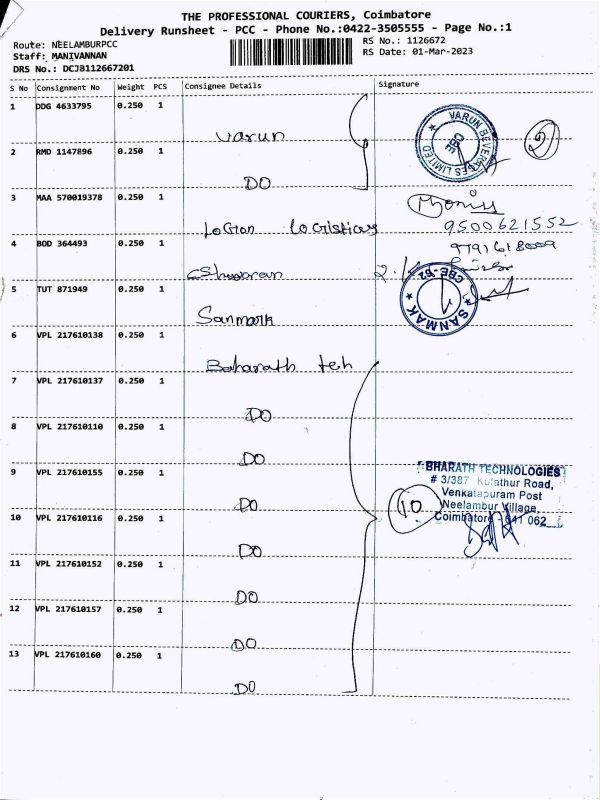 THE PROFESSIONAL COURIERS, Coimbatore
Delivery Runsheet - PCC - Phone No.:0422-3505555 - Page No.:1
Route: NEELAMBURPCC
RS No.: 1126672
Staff: MANIVANNAN
RS Date: 01-Mar-2023
DRS No.: DCJB112667201
S No Consignment No Weight PCS Consignee Details Signature
1 DDG 4633795 0.250 1
Varun
VARUN BEVERAGES LIMITED CBE
2
2 RMD 1147896 0.250 1
DO
3 MAA 570019378 0.250 1
Logistics
9500621552
4 BOD 364493 0.250 1
9791618009
Eshwaran
5 TUT 871949 0.250 1
Sanmark
SANMAK CBE-62
6 VPL 217610138 0.250 1
Baharath teh
7 VPL 217610137 0.250 1
DO
8 VPL 217610110 0.250 1
DO
9 VPL 217610155 0.250 1
DO
BHARATH TECHNOLOGIES
# 3/387 Kulathur Road,
Venkatapuram Post
Neelambur Village,
Coimbatore - 641 062
10
10 VPL 217610116 0.250 1
DO
11 VPL 217610152 0.250 1
DO
12 VPL 217610157 0.250 1
DO
13 VPL 217610160 0.250 1
DO